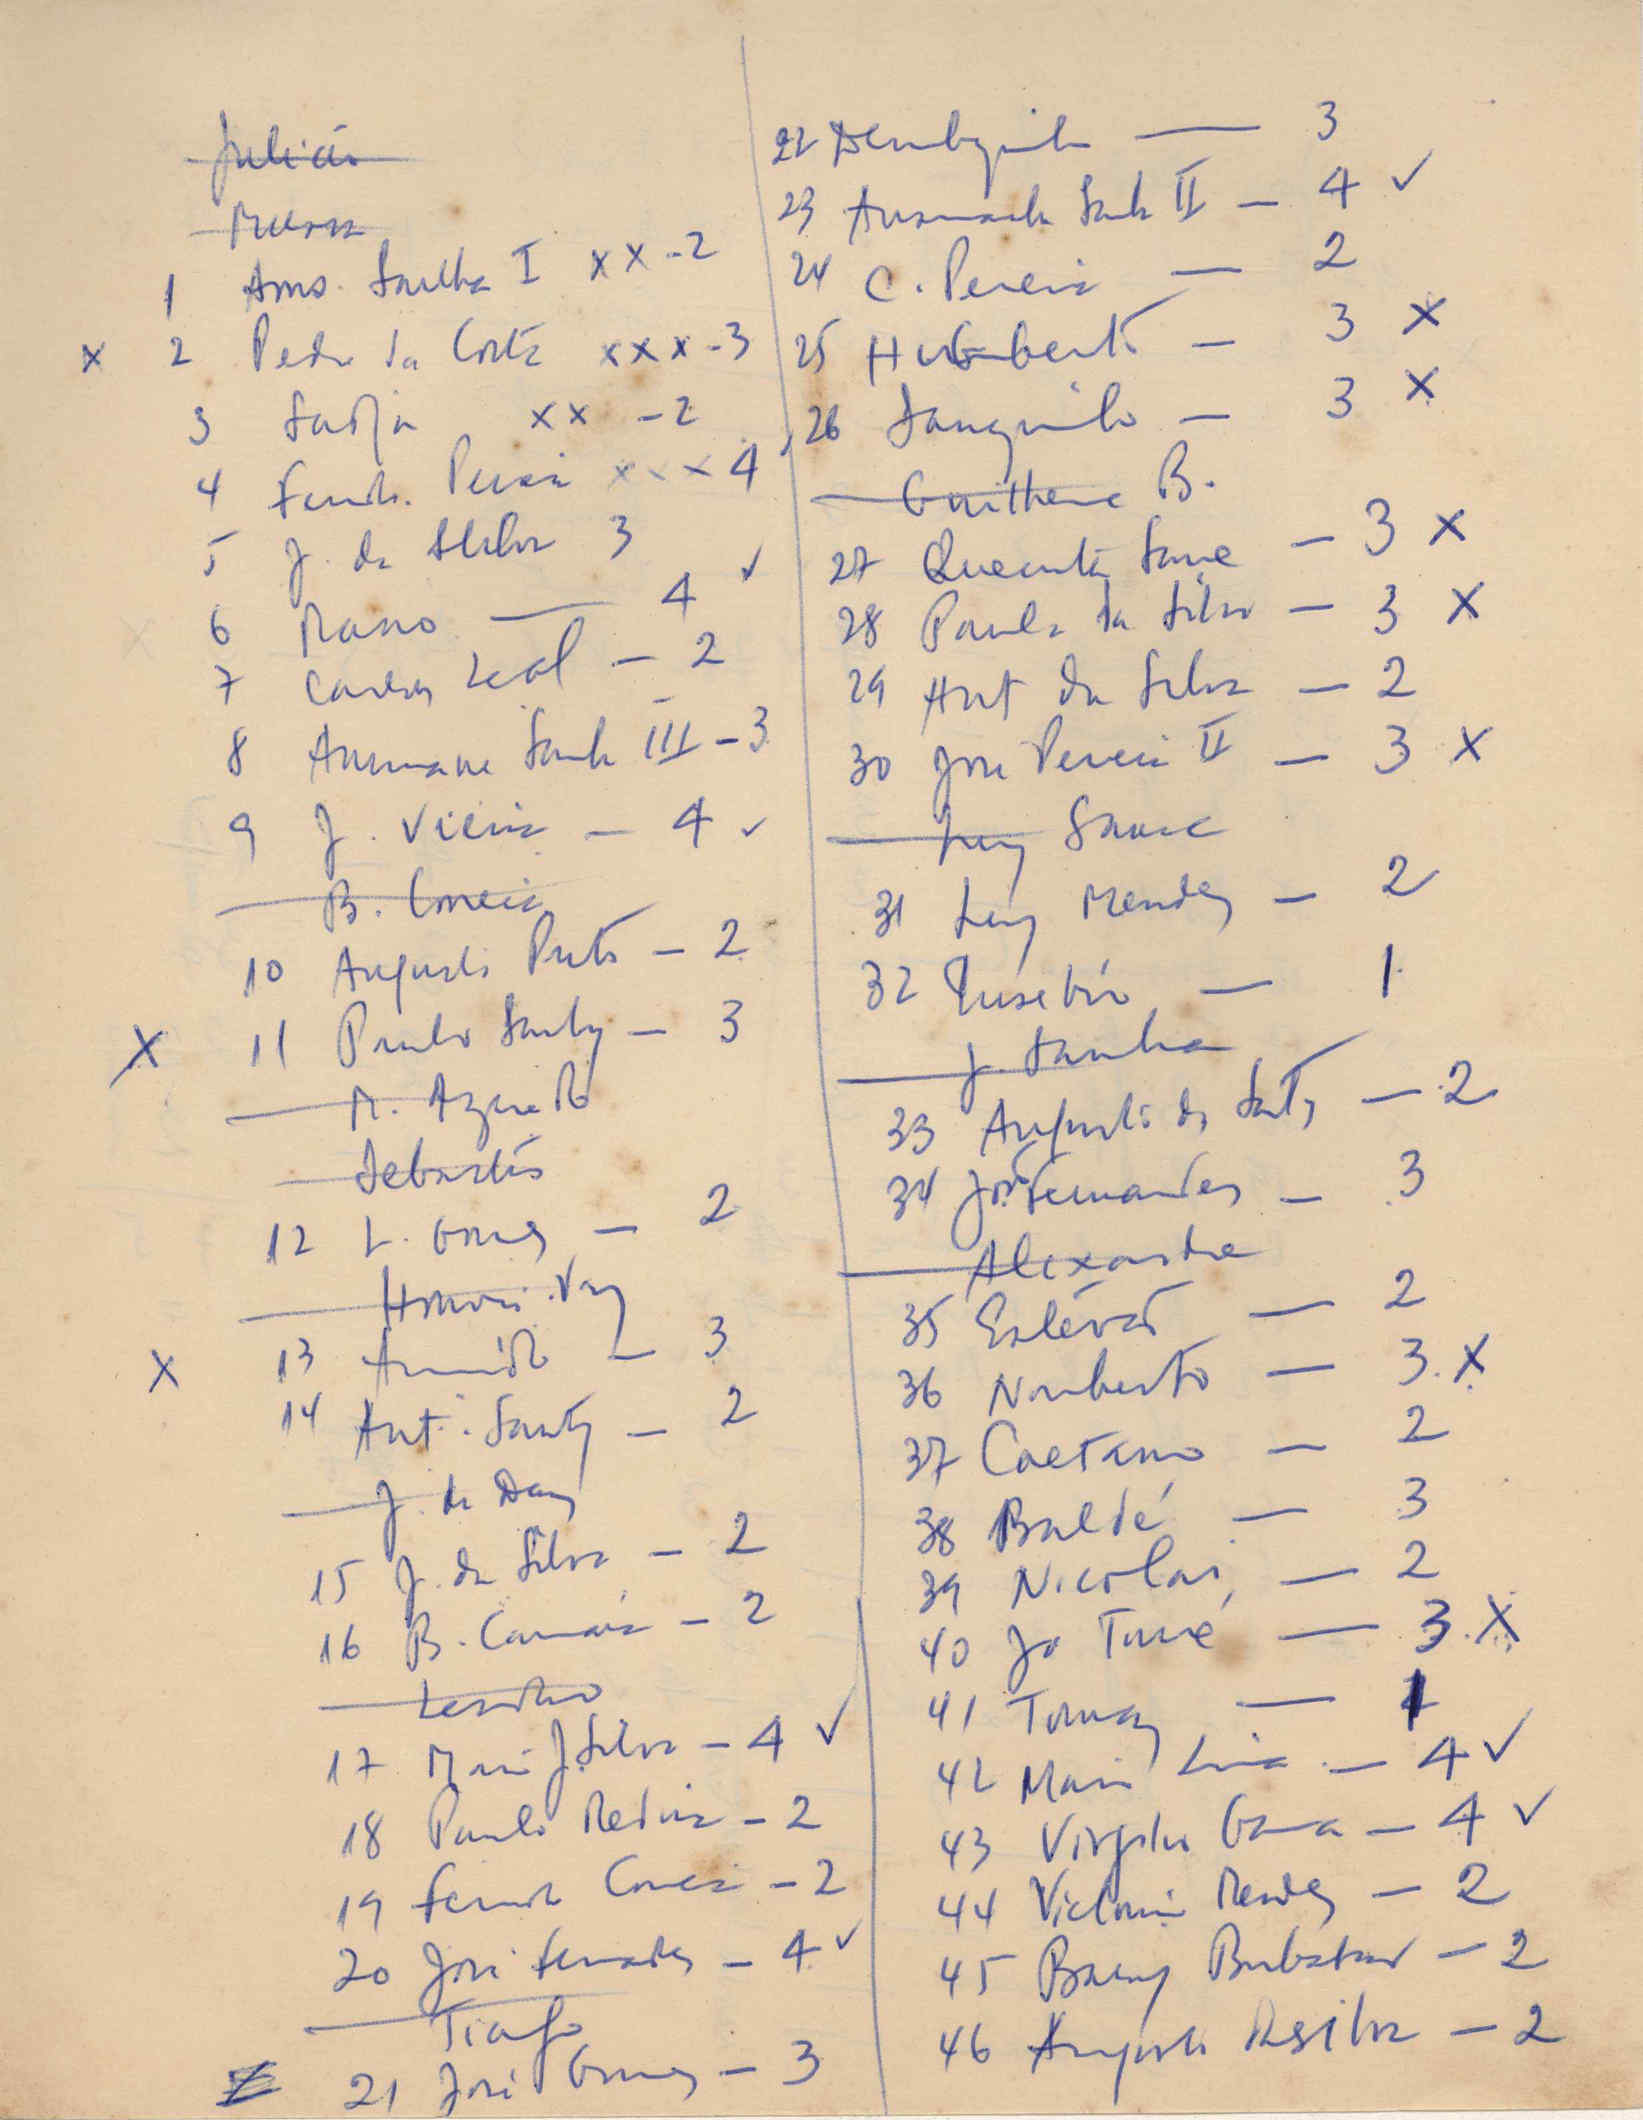 Julião
1 Ans. Samba I xx - 2
x 2 Pedro da Costa xxx - 3
3 xx - 2
4 Fernd. Pereira xxx 4
5 J. da Silva 3
6 Mario — 4 ✓
7 Carlos Leal — 2
8 Ansumane Samba III - 3
9 J. Vieira — 4 ✓
B. Correia
10 Augusto Preto — 2
x 11 Paulo Santos — 3
M. Azevedo
Sebastião
12 L. Gomes — 2
Honório Vaz
x 13 Armindo — 3
14 Ant. Santos — 2
J. de Deus
15 J. da Silva — 2
16 B. Camará — 2
17 Maria J. Silva — 4 ✓
18 Paulo Medina — 2
19 Fernando Correia — 2
20 José Fernandes — 4 ✓
Tiago
21 José Gomes — 3
22 — 3
23 Ansumane Samba II — 4 ✓
24 C. Pereira — 2
25 Humberto — 3 x
26 Sanquilo — 3 x
Guilherme B.
27 Quecuta Sane — 3 x
28 Paulo da Silva — 3 x
29 Ant da Silva — 2
30 José Pereira II — 3 x
Luiz Sanca
31 Luiz Mendes — 2
32 Eusébio — 1
J. Samba
33 Augusto dos Santos — 2
34 José Fernandes — 3
Alexandre
35 Estêvão — 2
36 Norberto — 3 x
37 Caetano — 2
38 Baldé — 3
39 Nicolau — 2
40 Jo Tomé — 3 x
41 Tomaz — 1
42 Maria Luisa — 4 ✓
43 Virgilio Gama — 4 ✓
44 Victorino Mendes — 2
45 Barry Bubakar — 2
46 Augusto Dasilva — 2